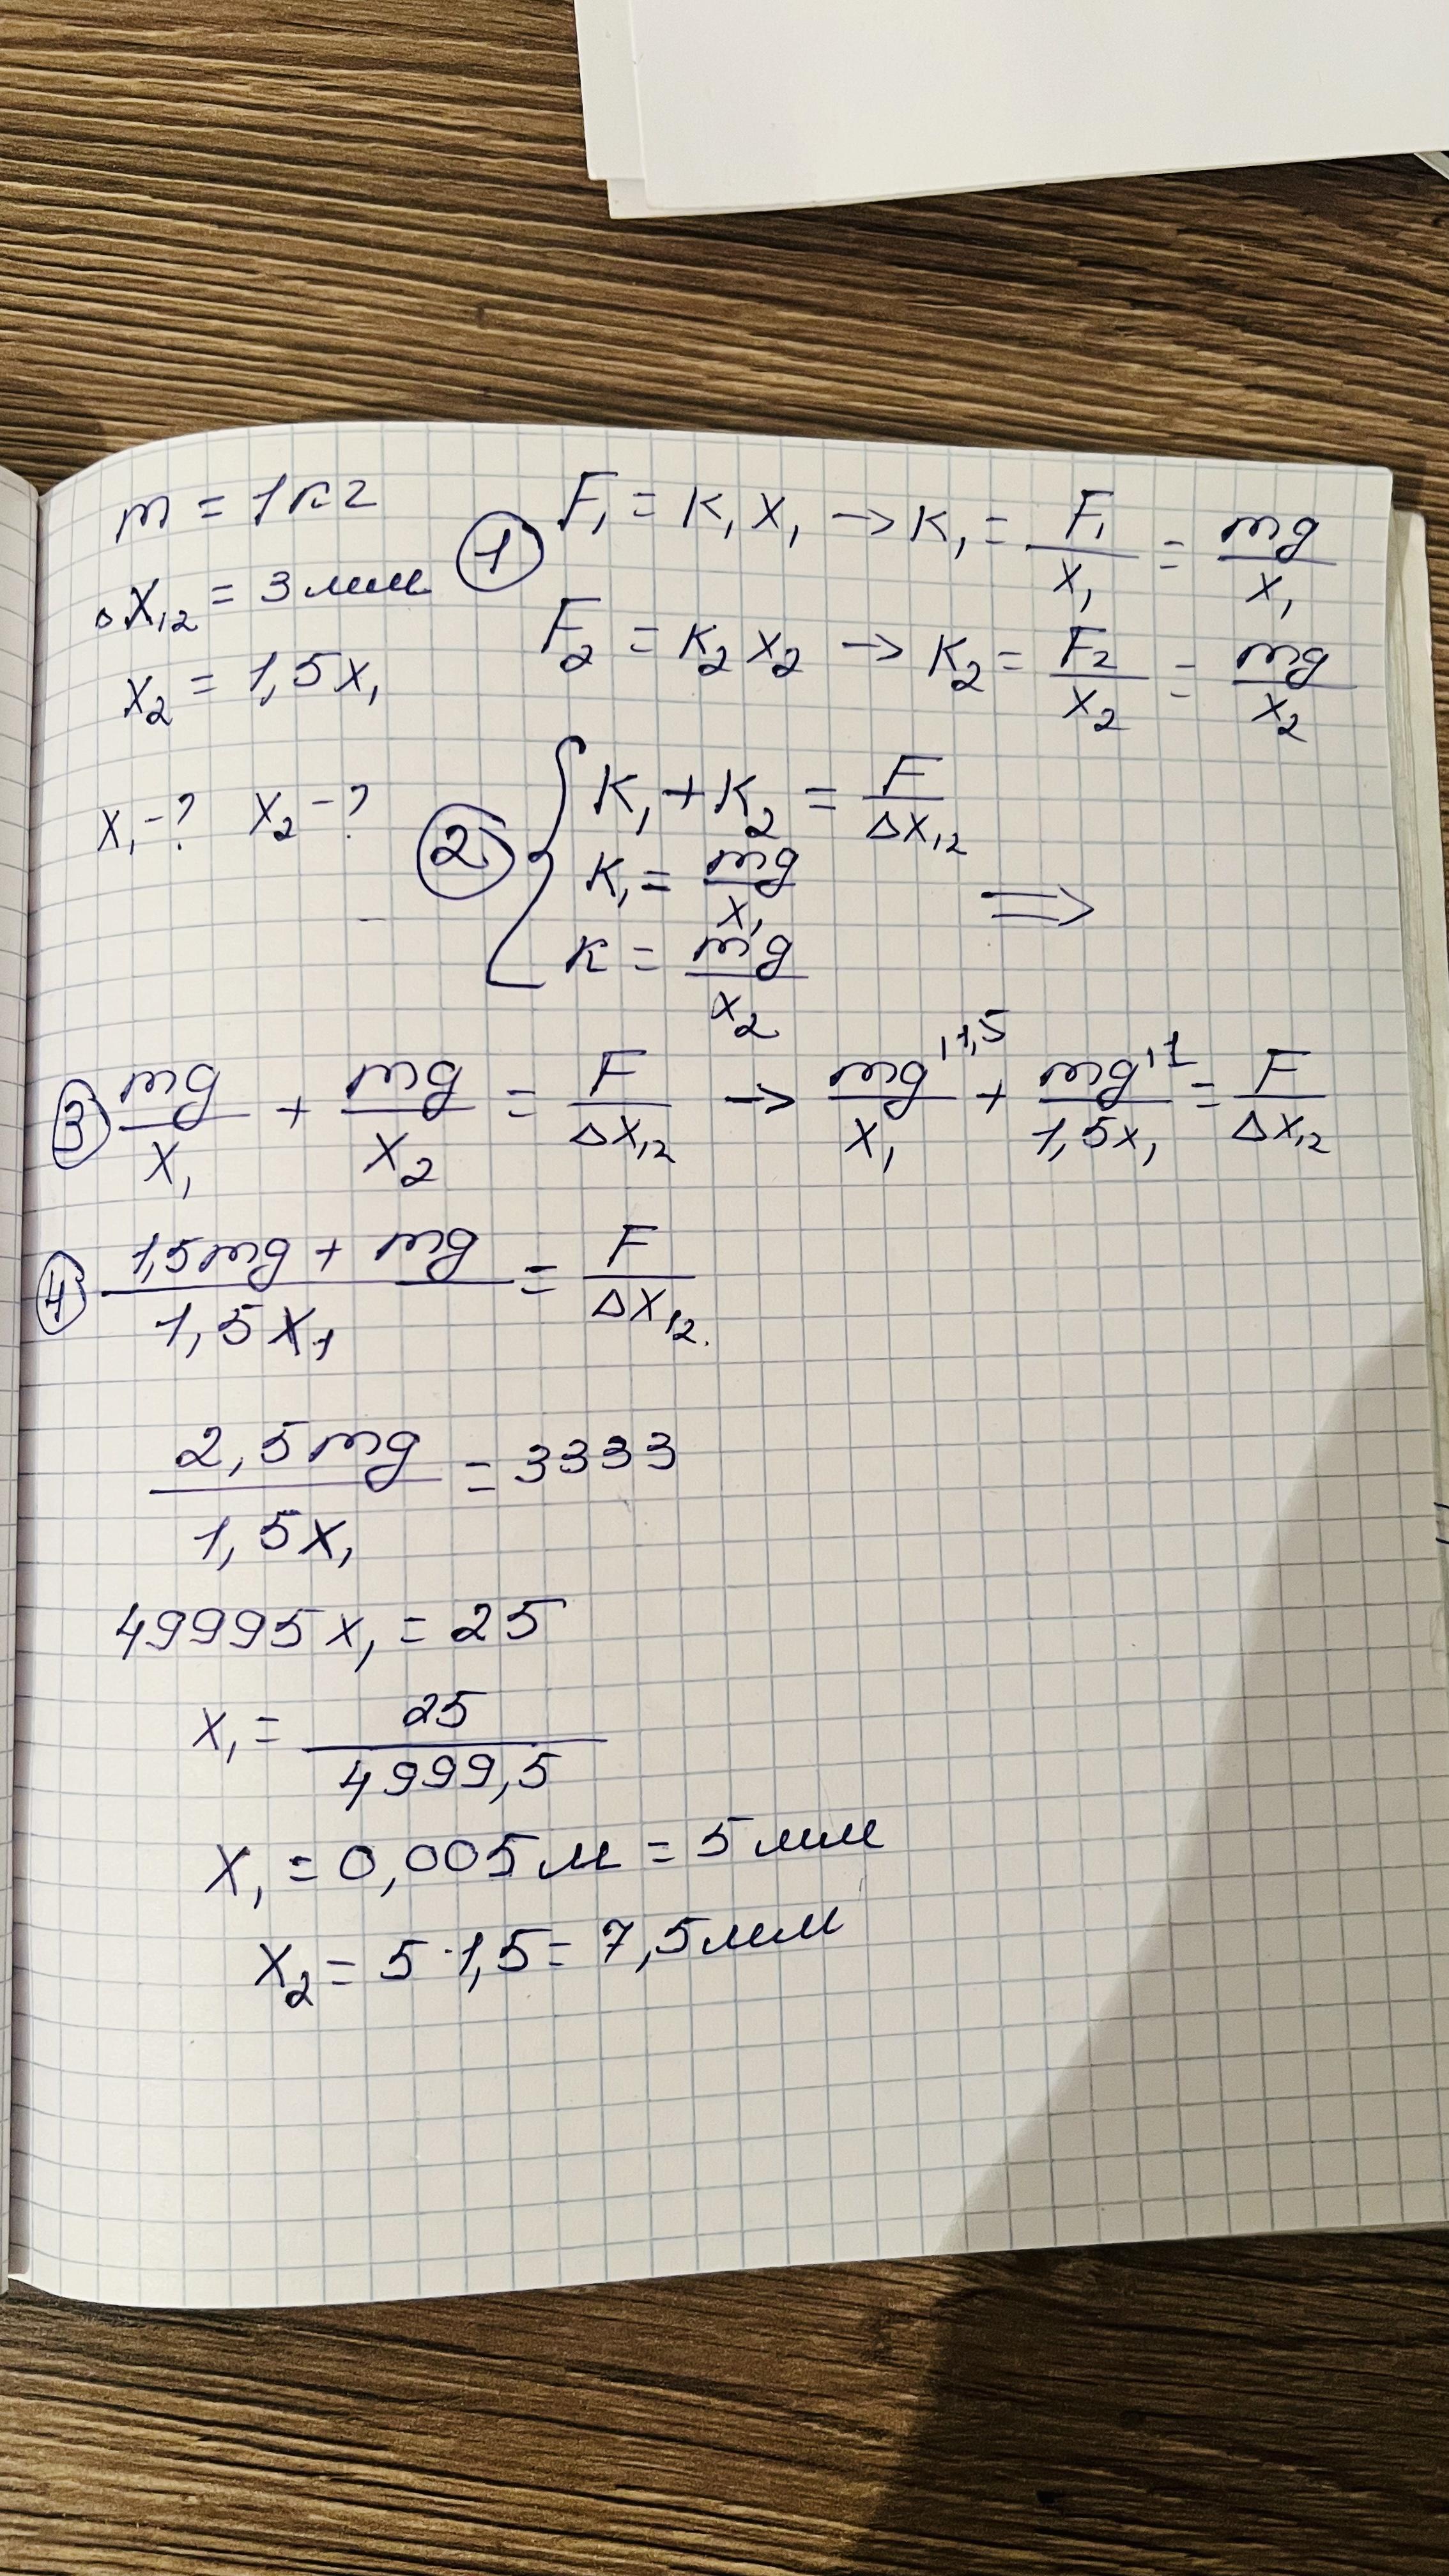 m = 1кг
△x₁₂ = 3мм
x₂ = 1,5x₁
x₁-? x₂-?
① F₁ = k₁x₁ → k₁ = F₁/x₁ = mg/x₁
F₂ = k₂x₂ → k₂ = F₂/x₂ = mg/x₂
② { k₁ + k₂ = F/△x₁₂
k₁ = mg/x₁ ⇒
k = mg/x₂
③ mg/x₁ + mg/x₂ = F/△x₁₂ → mg'¹,⁵/x₁ + mg'¹/1,5x₁ = F/△x₁₂
④ (1,5mg + mg)/1,5x₁ = F/△x₁₂.
2,5mg/1,5x₁ = 3333
49995x₁ = 25
x₁ = 25/4999,5
x₁ = 0,005м = 5мм
x₂ = 5·1,5 = 7,5мм